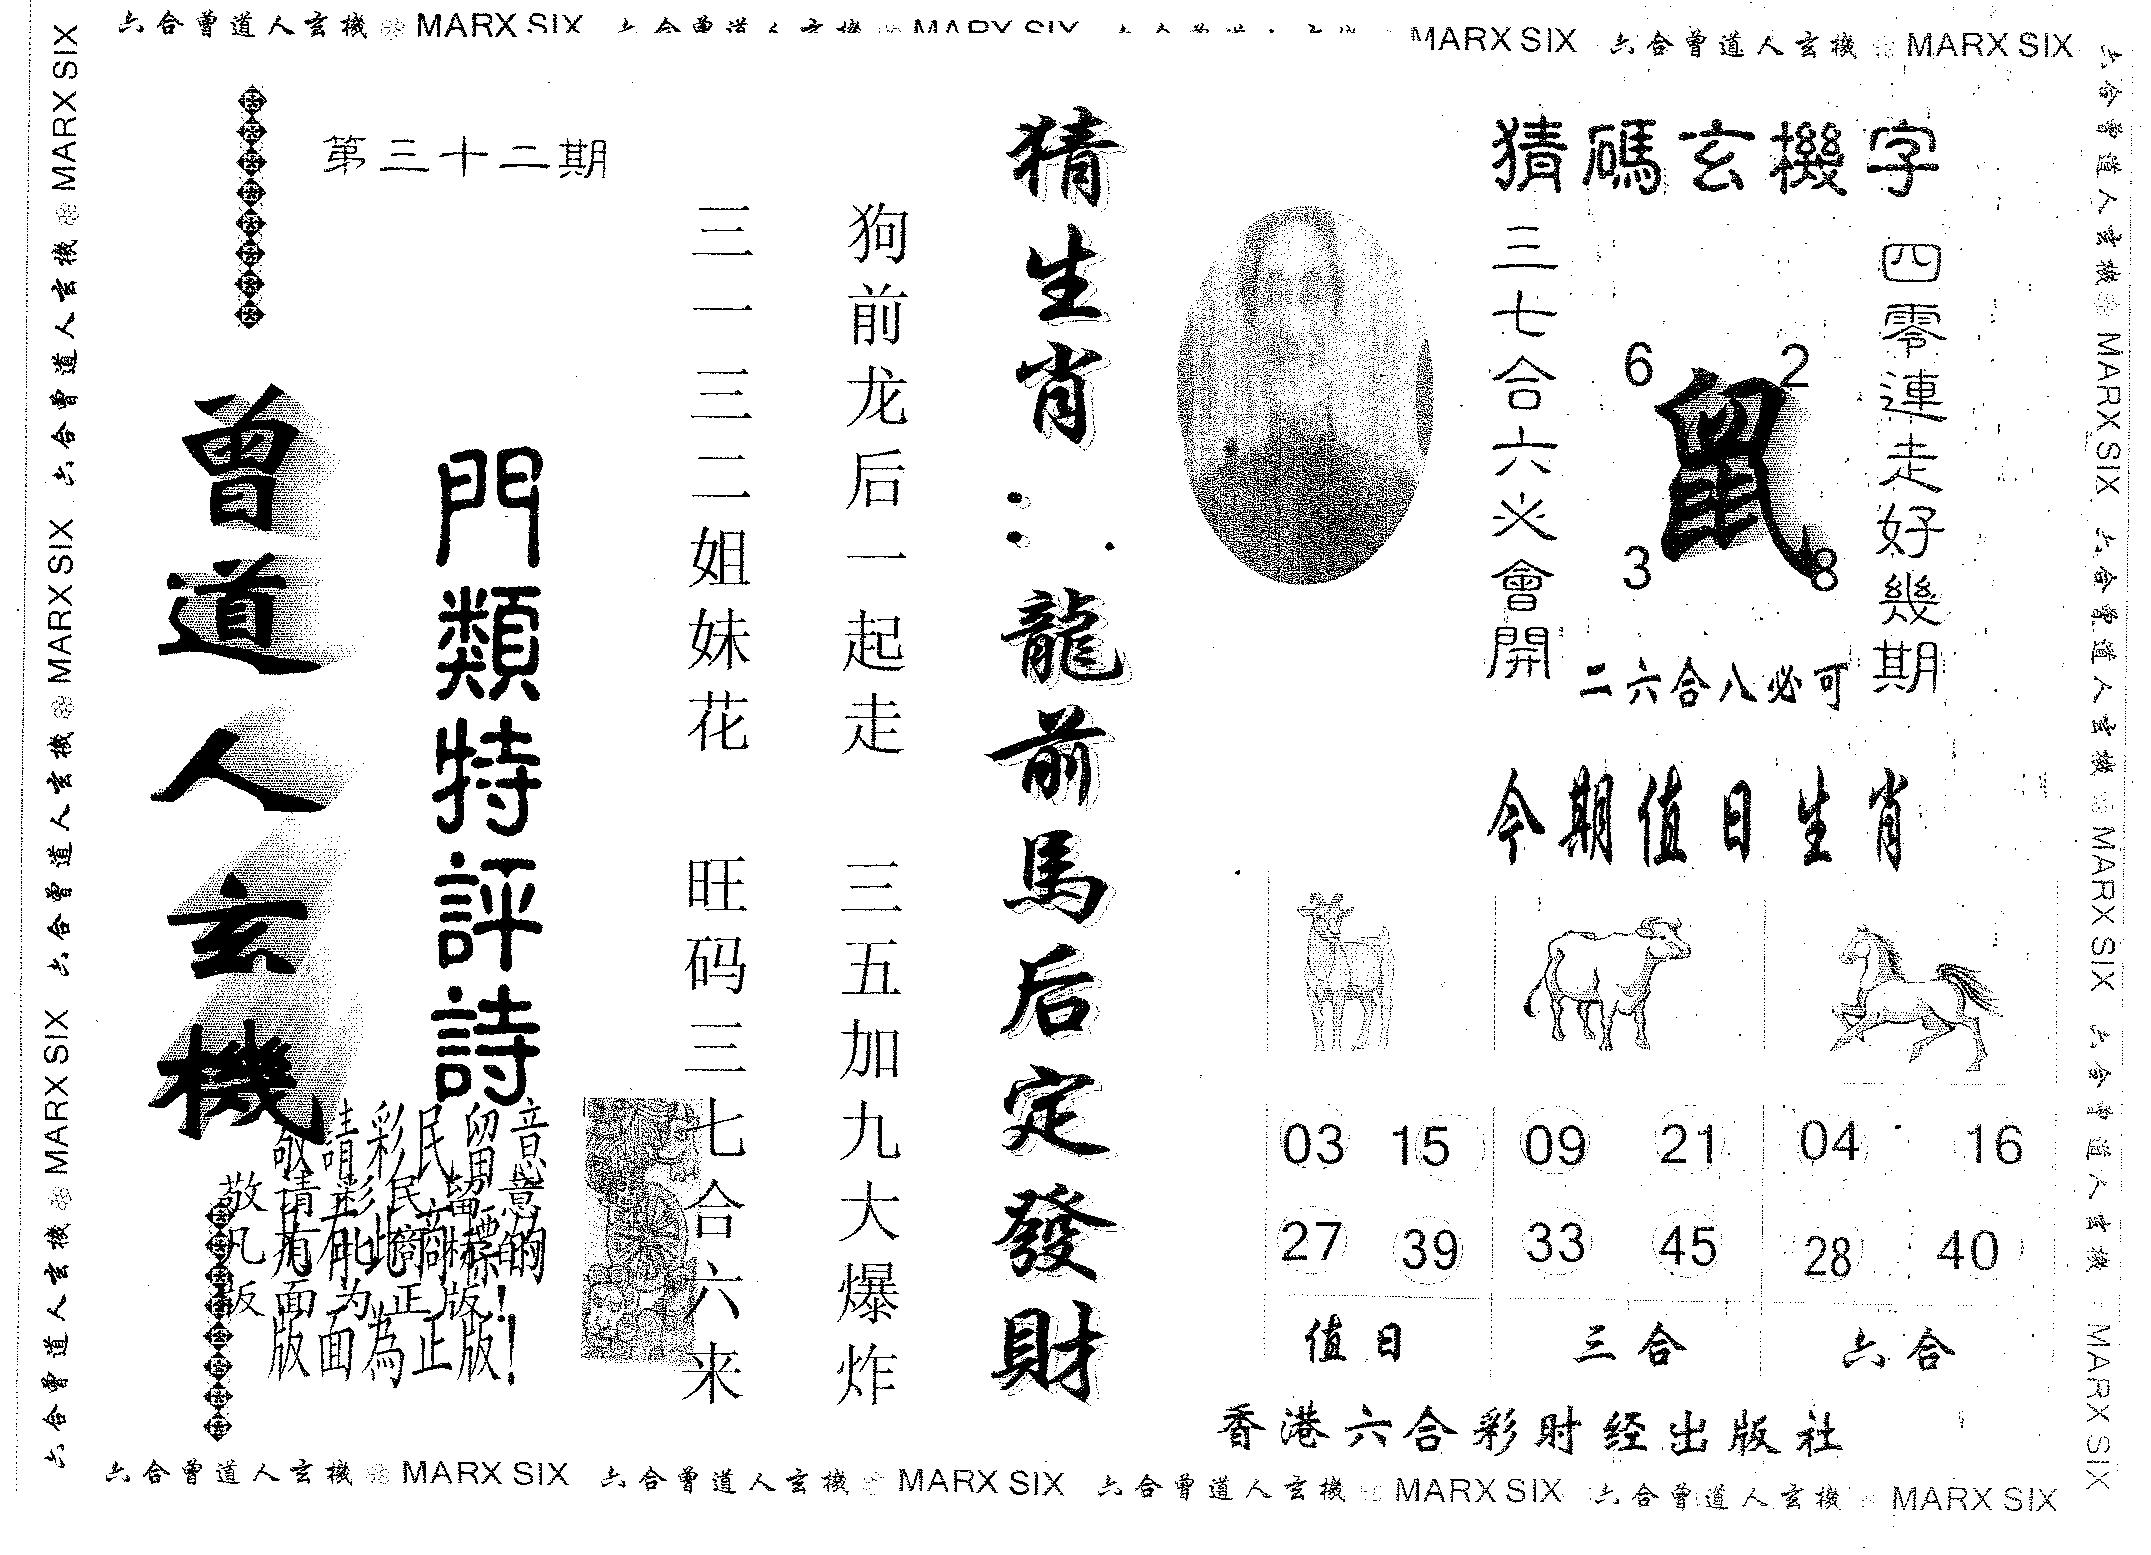 六合曾道人玄機 MARX SIX 六合曾道人玄機 MARX SIX 六合曾道人玄機 MARX SIX 六合曾道人玄機 MARX SIX
六合曾道人玄機 MARX SIX 六合曾道人玄機 MARX SIX 六合曾道人玄機 MARX SIX
六合曾道人玄機 MARX SIX 六合曾道人玄機 MARX SIX 六合曾道人玄機 MARX SIX
猜碼玄機字
四零連走好幾期
6 2
鼠
3 8
三七合六必會開
二六合八必可
今期值日生肖
03 15 09 21 04 16
27 39 33 45 28 40
值日 三合 六合
香港六合彩财经出版社
猜生肖：龍前馬后定發財
狗前龙后一起走 三五加九大爆炸
三一三二姐妹花 旺码三七合六来
第三十二期
門類特評詩
曾道人玄機
敬請彩民留意
敬请彩民留意
凡有此商標的
版面为正版！
版面為正版！
六合曾道人玄機 MARX SIX 六合曾道人玄機 MARX SIX 六合曾道人玄機 MARX SIX 六合曾道人玄機 MARX SIX